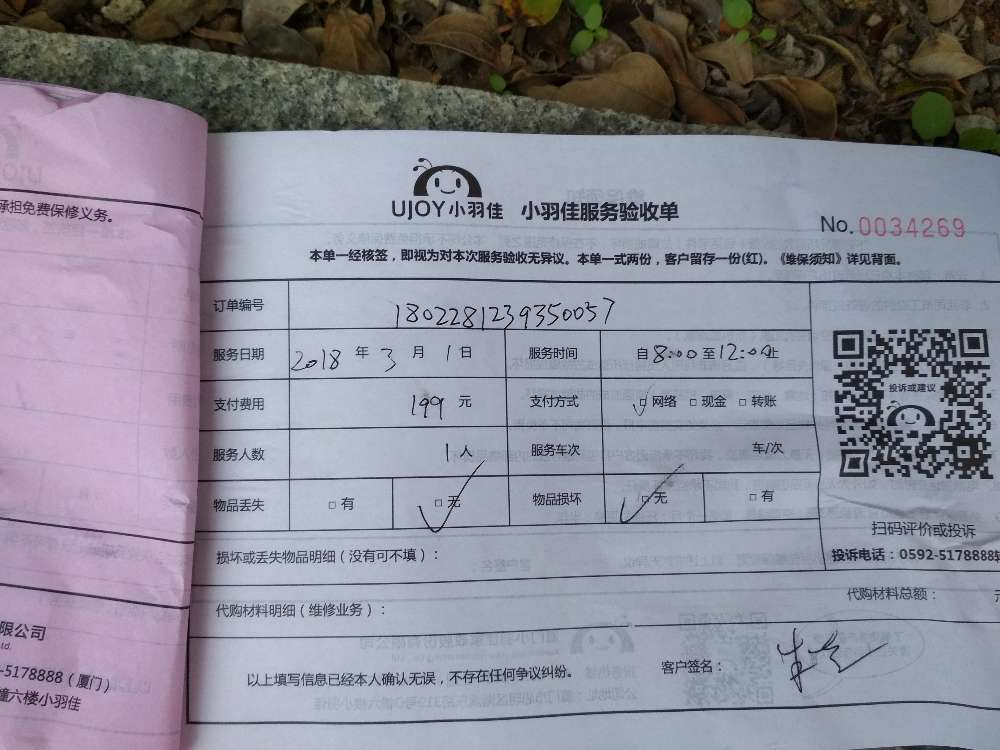 承担免费保修义务。
限公司
Ltd.
-5178888（厦门）
幢六楼小羽佳
UJOY小羽佳 小羽佳服务验收单
No.0034269
本单一经核签，即视为对本次服务验收无异议。本单一式两份，客户留存一份(红)。《维保须知》详见背面。
订单编号 1802281239350057
服务日期 2018 年 3 月 1 日 服务时间 自8:00至12:00止
支付费用 199 元 支付方式 □网络 □现金 □转账
服务人数 1人 服务车次 车/次
物品丢失 □有 □无 物品损坏 □无 □有
投诉或建议
扫码评价或投诉
投诉电话：0592-5178888转
损坏或丢失物品明细（没有可不填）：
代购材料明细（维修业务）： 代购材料总额： 元
以上填写信息已经本人确认无误，不存在任何争议纠纷。 客户签名：